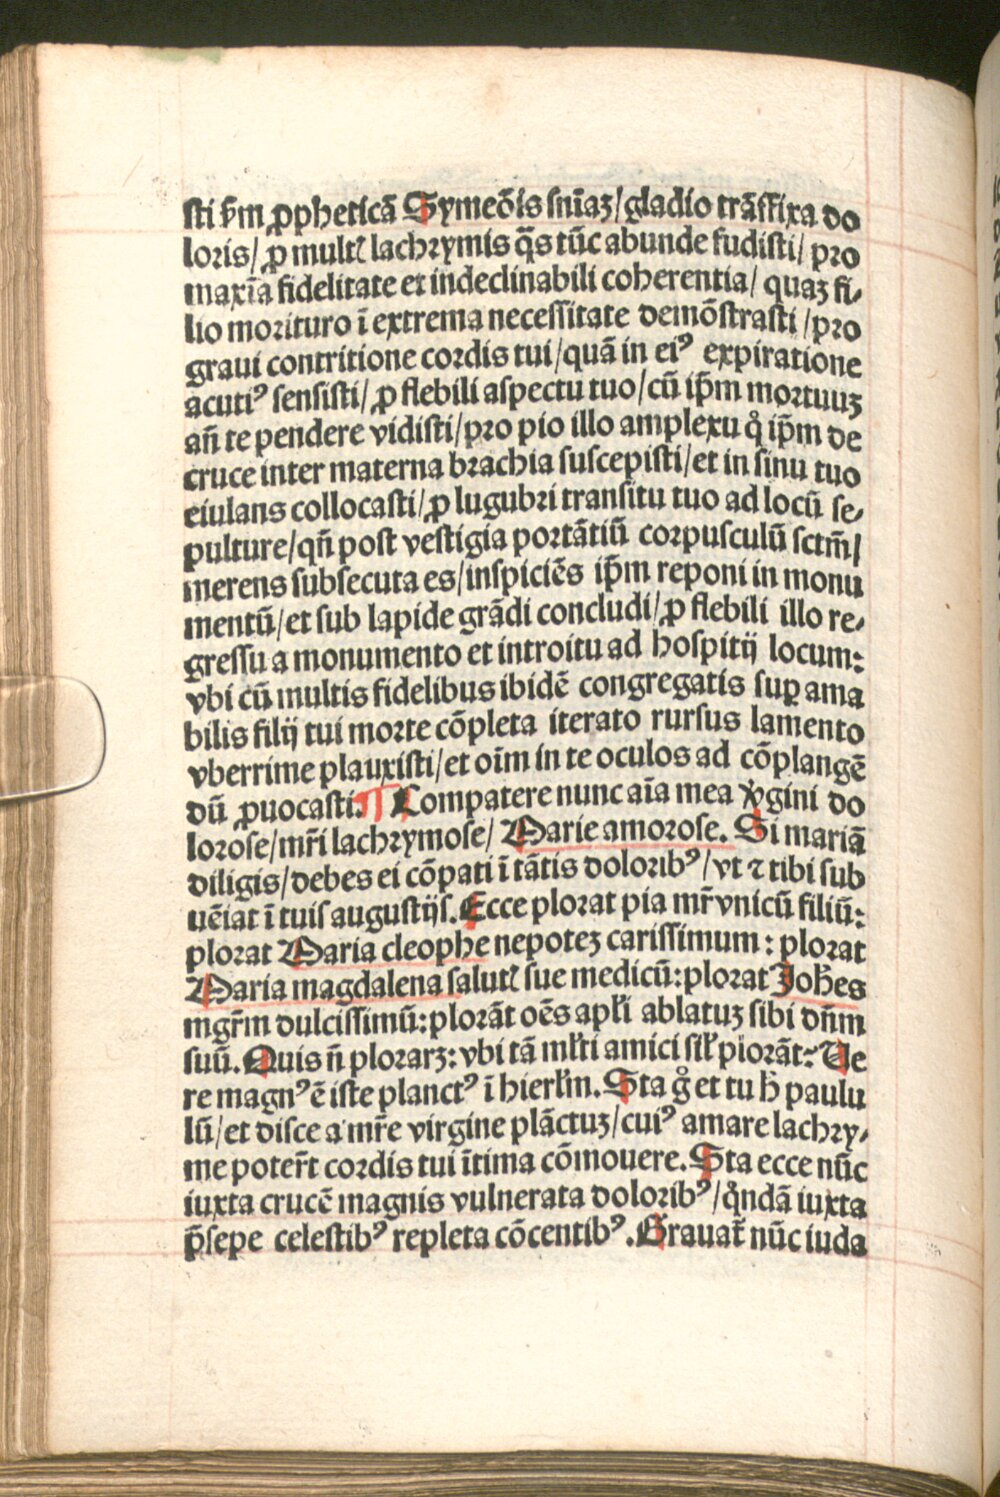 sti ẜm ꝓpheticā Symeōis snīaꝫ/gladio trāsfixa do
loris/ ꝓ multꝭ lachrymis q̄s tūc abunde fudisti/ pro
maxīa fidelitate et indeclinabili coherentia/ quaꝫ fi⸗
lio morituro ī extrema necessitate demōstrasti /pro
graui contritione cordis tui/quā in eiꝰ expiratione
acutiꝰ sensisti/ ꝓ flebili aspectu tuo/cū ip̄m mortuuꝫ
an̄ te pendere vidisti/pro pio illo amplexu qͦ ip̄m de
cruce inter materna brachia suscepisti/et in sinu tuo
eiulans collocasti/ꝓ lugubri transitu tuo ad locū se⸗
pulture/qn̄ post vestigia portātiū corpusculū sctm̄/
merens subsecuta es/inspiciēs ip̄m reponi in monu
mentū/et sub lapide grādi concludi/ꝓ flebili illo re⸗
gressu a monumento et introitu ad hospitij locum:
vbi cū multis fidelibus ibidē congregatis suꝑ ama
bilis filij tui morte cōpleta iterato rursus lamento
vberrime plauxisti/et oīm in te oculos ad cōplangē
dū ꝓuocasti. ¶ Compatere nunc aīa mea v̾gini do
lorose/mr̄i lachrymose/ Marie amorose. Si mariā
diligis/debes ei cōpati ī tātis doloribꝰ/vt ⁊ tibi sub
uēiat ī tuis augustijs. Ecce plorat pia mr̄ vnicū filiū:
plorat Maria cleophe nepoteꝫ carissimum : plorat
Maria magdalena salutꝭ sue medicū: plorat Joh̄es
mgr̄m dulcissimū: plorāt oēs apl̄i ablatuꝫ sibi dn̄m
suū. Quis n̄ plorarꝫ: vbi tā ml̄ti amici sil̄ plorāt: Ue
re magnꝰ ē iste planctꝰ ī hierl̄m. Sta gͦ et tu h̄ paulu
lū/et disce a mr̄e virgine plāctuꝫ/cuiꝰ amare lachry⸗
me poter̄t cordis tui ītima cōmouere. Sta ecce nūc
iuxta crucē magnis vulnerata doloribꝰ/qͦndā iuxta
p̄sepe celestibꝰ repleta cōcentibꝰ. Grauat̄ nūc iuda